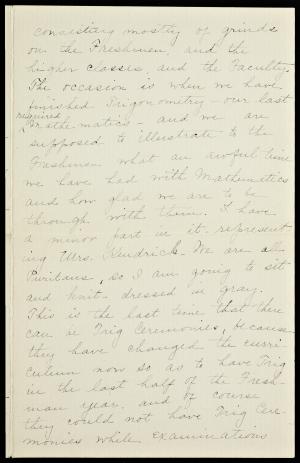 consisting mostly of grinds
on the Freshmen, and the
higher classes, and the Faculty.
The occasion is when we have
finished Trigonometry - our last
required
Mathematics - and we are
supposed to illustrate to the
Freshmen what an awful time
we have had with Mathematics
and how glad we are to be
through with them. I have
a minor part in it, represent-
ing Mrs. Kendrick. We are all
Puritans, so I am going to sit
and knit - dressed in gray.
This is the last time that there
can be Trig Ceremonies, because
they have changed the curri-
culum now so as to have Trig
in the last half of the Fresh-
man year, and of course
they could not have Trig Cere-
monies while examinations